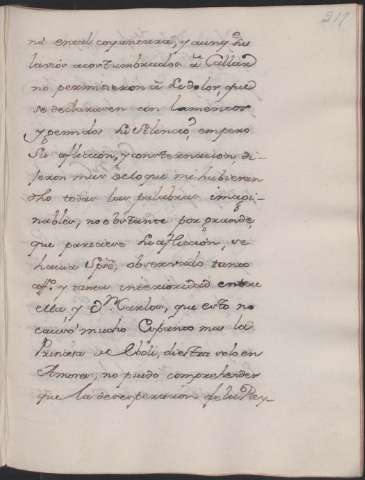 217
na en tal coyuntura, y aunq̃ sus
lavios acostumbrados â Callar
no permitieron â su dolor, que
se declarasen con lamentos
y gemidos su silencio, empero
su afliccion, y consternacion di-
jeron mas de lo que me hubieran
dho todas las palabras imagi-
nables, no obstante por grande,
que pareciese su afliccion, se
havia spr̃e, observado tanto
aff.º y tanta interioridad entre
ella, y Dⁿ Carlos, que esto no
causó mucho Espanto mas la
Princesa de Eboli, diestra solo en
Amores, no pudo comprehender
que la desesperacion de la Rey-